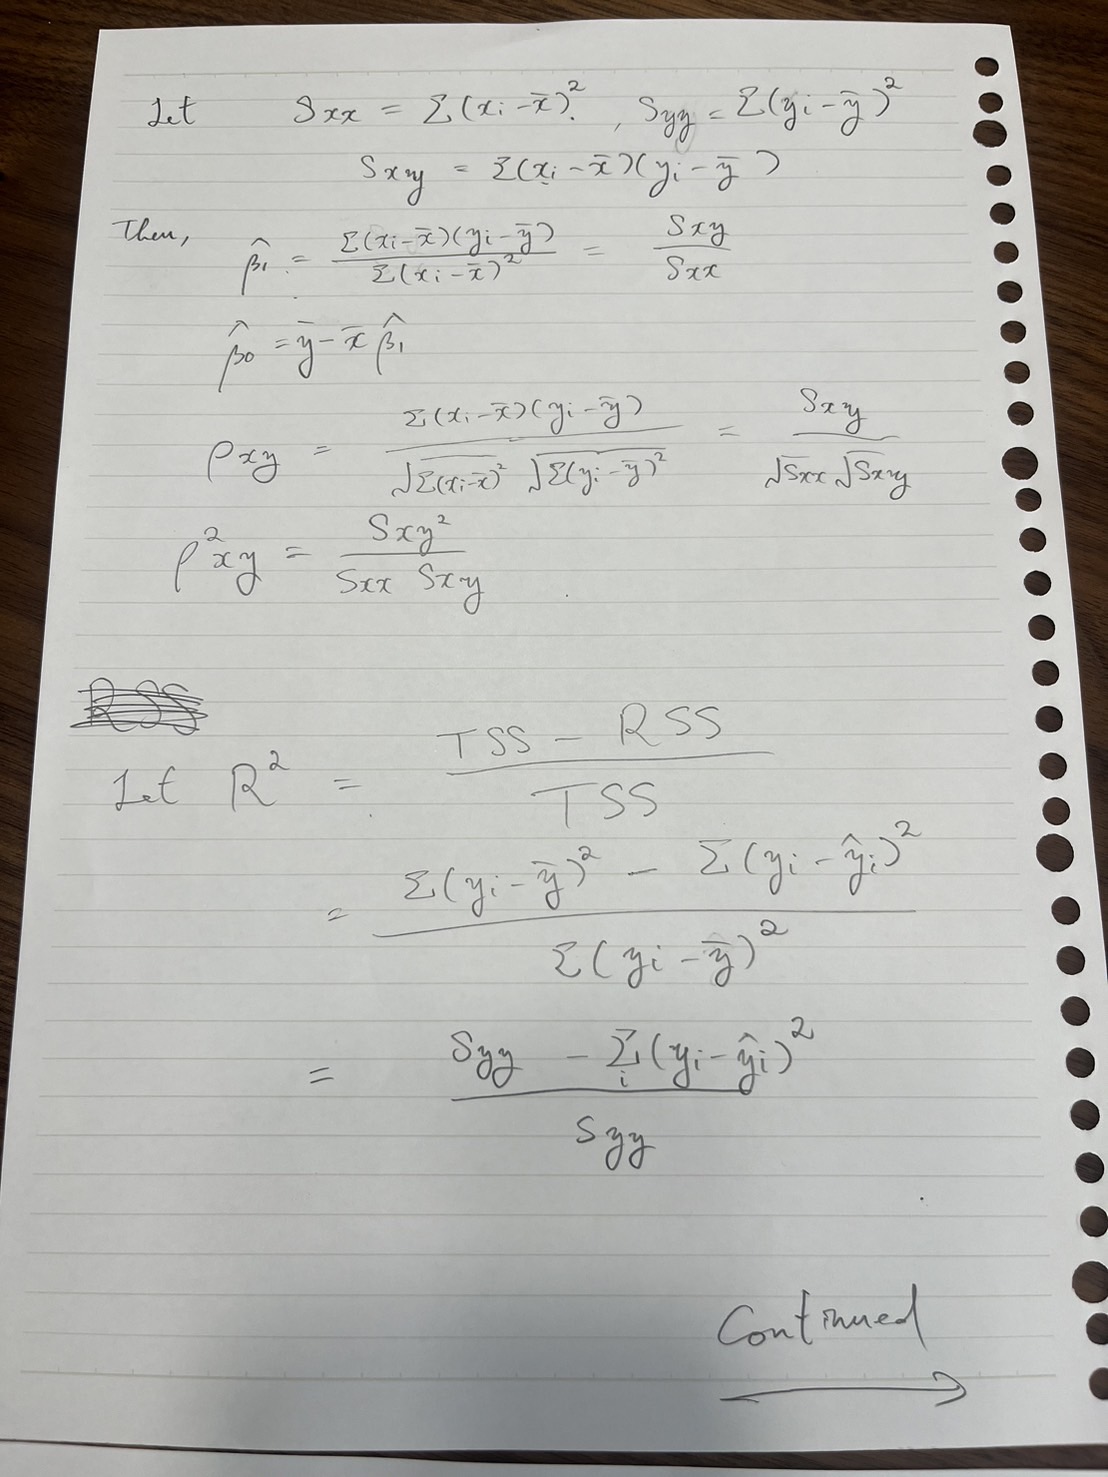 Let Sxx = Σ(xi - x̄)². , Syy = Σ(yi - ȳ)²
Sxy = Σ(xi - x̄)(yi - ȳ)
Then,
β̂1 = Σ(xi - x̄)(yi - ȳ) / Σ(xi - x̄)² = Sxy / Sxx
β̂0 = ȳ - x̄ β̂1
ρxy = Σ(xi - x̄)(yi - ȳ) / √Σ(xi - x̄)² √Σ(yi - ȳ)² = Sxy / √Sxx √Sxy
ρ²xy = Sxy² / Sxx Sxy
RSS
Let R² = TSS - RSS / TSS
= Σ(yi - ȳ)² - Σ(yi - ŷi)² / Σ(yi - ȳ)²
= Syy - Σi(yi - ŷi)² / Syy
Continued →